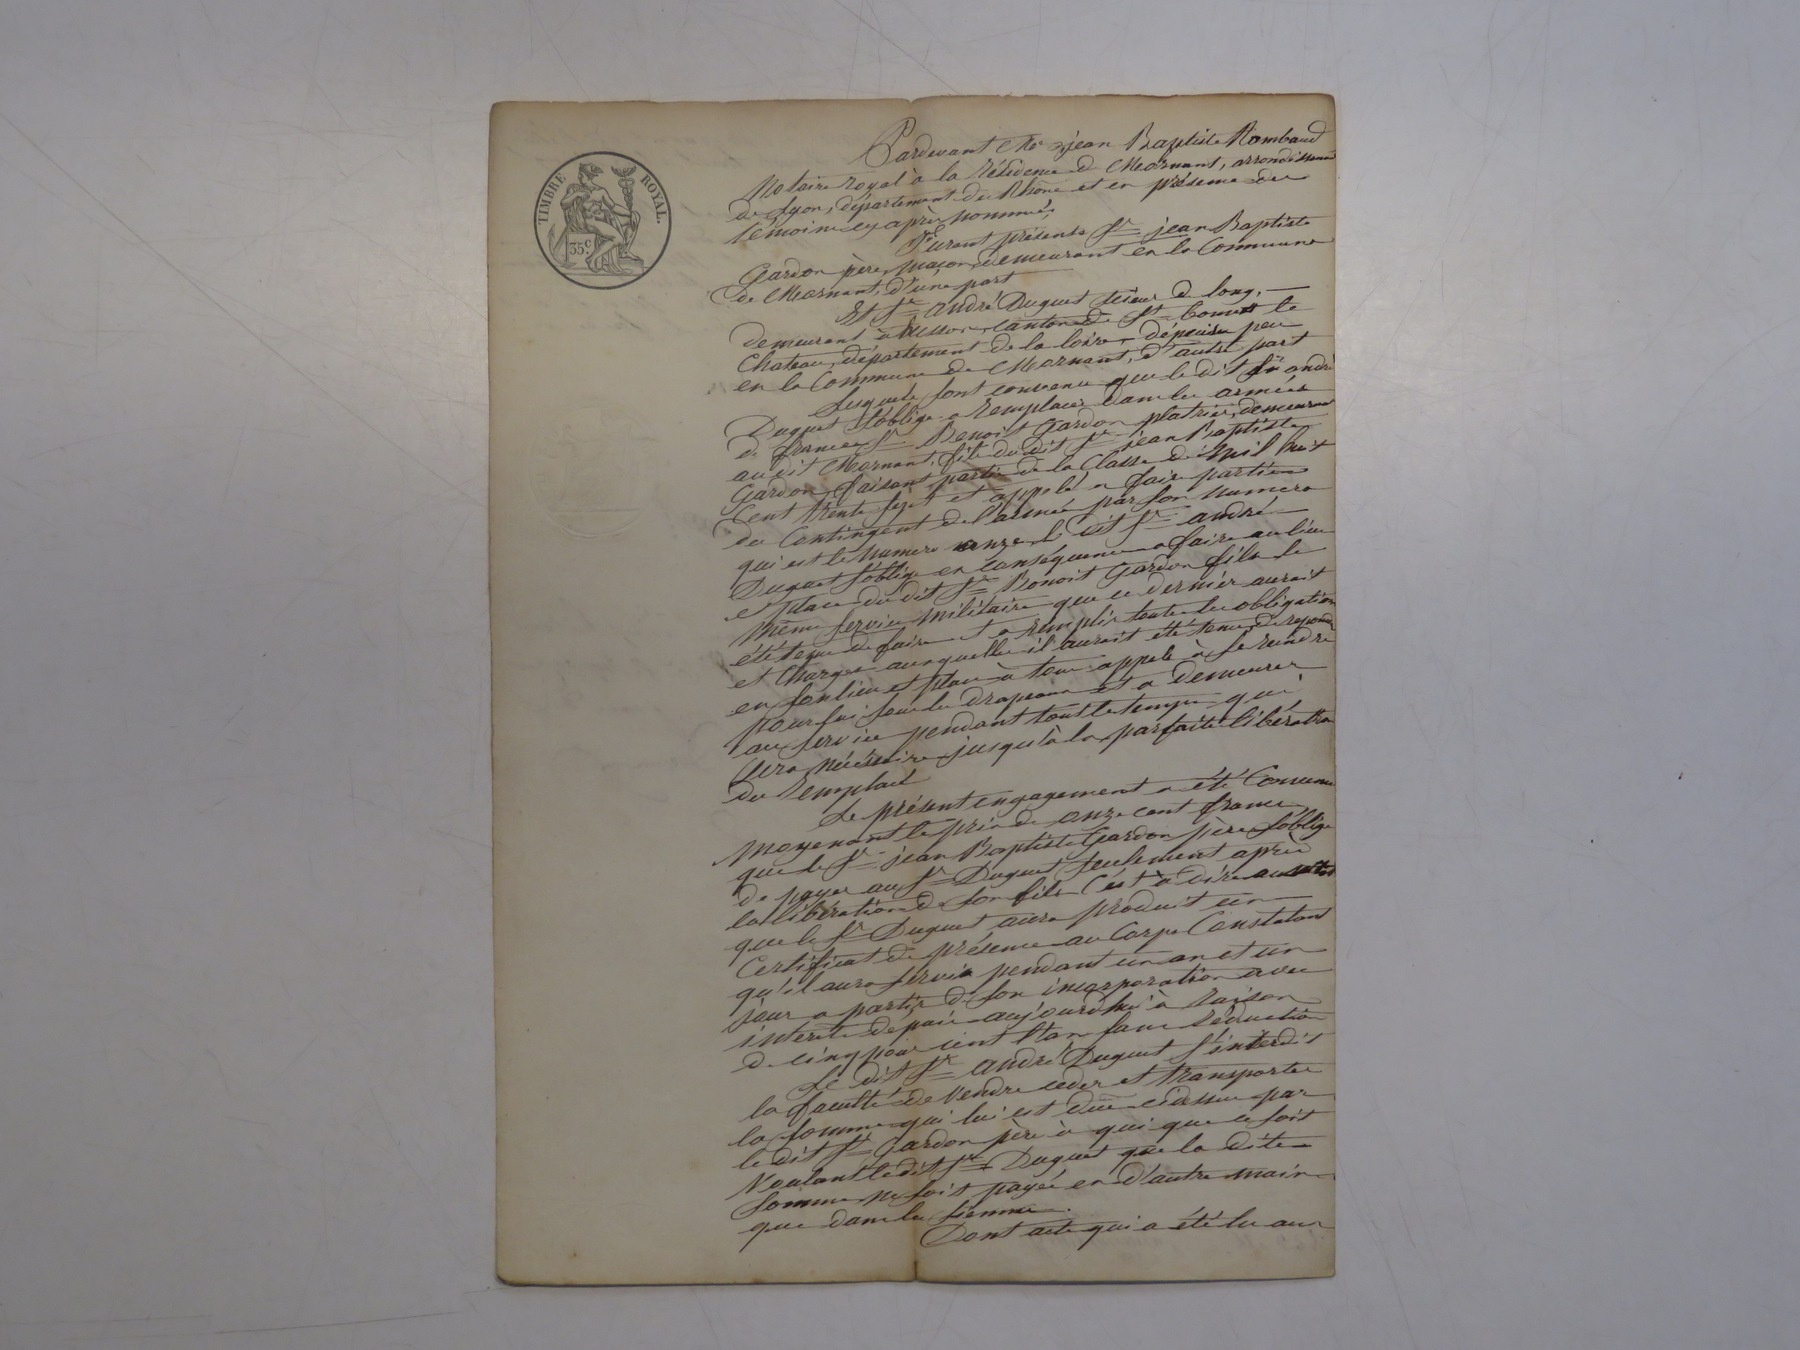 TIMBRE ROYAL.
35c
Pardevant Me jean Baptiste Rambaud
Notaire royal à la résidence de Mornant, arrondissement
de Lyon, département du Rhône et en présence des
témoins cy après nommés,
Furent présents Sr jean Baptiste
Gardon père, maçon, demeurant en la Commune
de Mornant, d'une part
Et Sr andré Duguet scieur de long,
demeurant à canton de St bonnet le
Chateau, département de la loire, dépuis peu
en la Commune de Mornant, d'autre part
Lesquels sont convenus que le dit Sr andré
Duguet s'oblige a remplacer dans les armées
de france Sr Benoit Gardon platrier, demeurant
au dit Mornant, fils du dit Sr jean Baptiste
Gardon, faisant partie de la Classe de mil huit
Cent trente sept et appelé a faire partie
du Contingent de l'armée par son numero
qui est le numero onze le dit Sr andré
Duguet s'oblige en conséquence a faire au lieu
et place du dit Sr Benoit Gardon fils le
même service militaire que ce dernier aurait
été tenu de faire et a remplir toutes les obligations
et charges auxquelles il aurait été tenu, de repondre
en son lieu et place à tous appels à se rendre
pour lui sous les drapeaux et a demeurer
au service pendant tout le temps qui
sera nécessaire jusqu'à la parfaite libération
du remplacé
Le présent engagement a été Convenu
moyenant le prix de onze cent francs
que le Sr jean Baptiste Gardon père s'oblige
de payer au Sr Duguet seulement après
la libération de son fils C'est à dire
que le Sr Duguet aura produit un
Certificat de présence au Corps Constatant
qu'il aura servis pendant un an et un
jour a partir de son incorporation avec
intérêts dépuis aujourd'hui à raison
de cinq pour cent l'an sans réduction
Le dit Sr andré Duguet s'interdit
la faculté de vendre ceder et transporter
la somme qui lui est due cidessus par
le dit Sr Gardon père à qui que ce soit
Voulant le dit Sr Duguet que la dite
somme ne soit payée en d'autre mains
que dans les siennes.
Dont acte qui a été lu aux